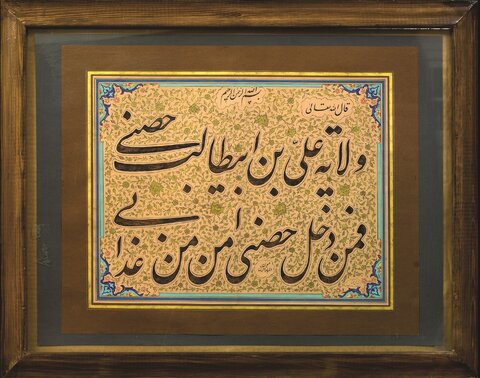 بسم الله الرحمن الرحیم
قال الله تعالی
ولایة علی بن ابیطالب حصنی
فمن دخل حصنی امن من عذابی